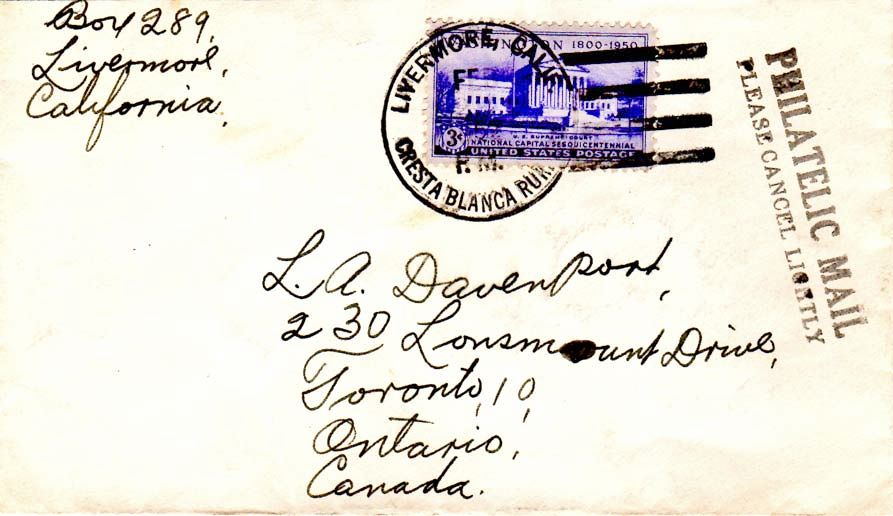 Box 289,
Livermore,
California,
LIVERMORE, CALIF
CRESTA BLANCA
P.M.
1800-1950
3¢
U. S. SUPREME COURT
NATIONAL CAPITAL SESQUICENTENNIAL
UNITED STATES POSTAGE
PHILATELIC MAIL
PLEASE CANCEL LIGHTLY
L. A. Davenport,
230 Lonsmount Drive,
Toronto, 10,
Ontario,
Canada.